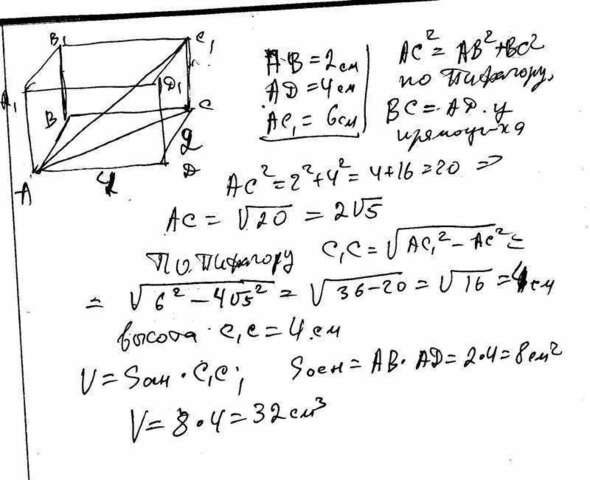 B₁ C₁
A₁ D₁
B C
A D
4 2
AB = 2 см
AD = 4 см
AC₁ = 6 см
AC² = AB² + BC²
по Пифагору,
BC = AD. у
прямоуг-ка
AC² = 2² + 4² = 4 + 16 = 20 =>
AC = √20 = 2√5
По Пифагору C₁C = √AC₁² - AC² =
= √6² - 4√5² = √36-20 = √16 = 4 см
высота C₁C = 4 см
V = Sосн · C₁C; Sосн = AB · AD = 2·4 = 8 см²
V = 8 · 4 = 32 см³